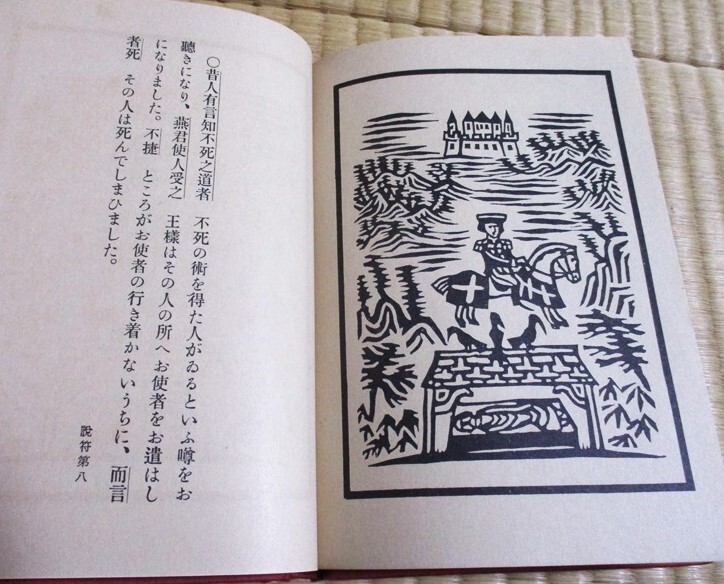 〇昔人有言知不死之道者　不死の術を得た人がゐるといふ噂をお
聽きになり、燕君使人受之　王樣はその人の所へお使者をお遣はし
になりました。不捷　ところがお使者の行き着かないうちに、而言
者死　その人は死んでしまひました。
說符第八